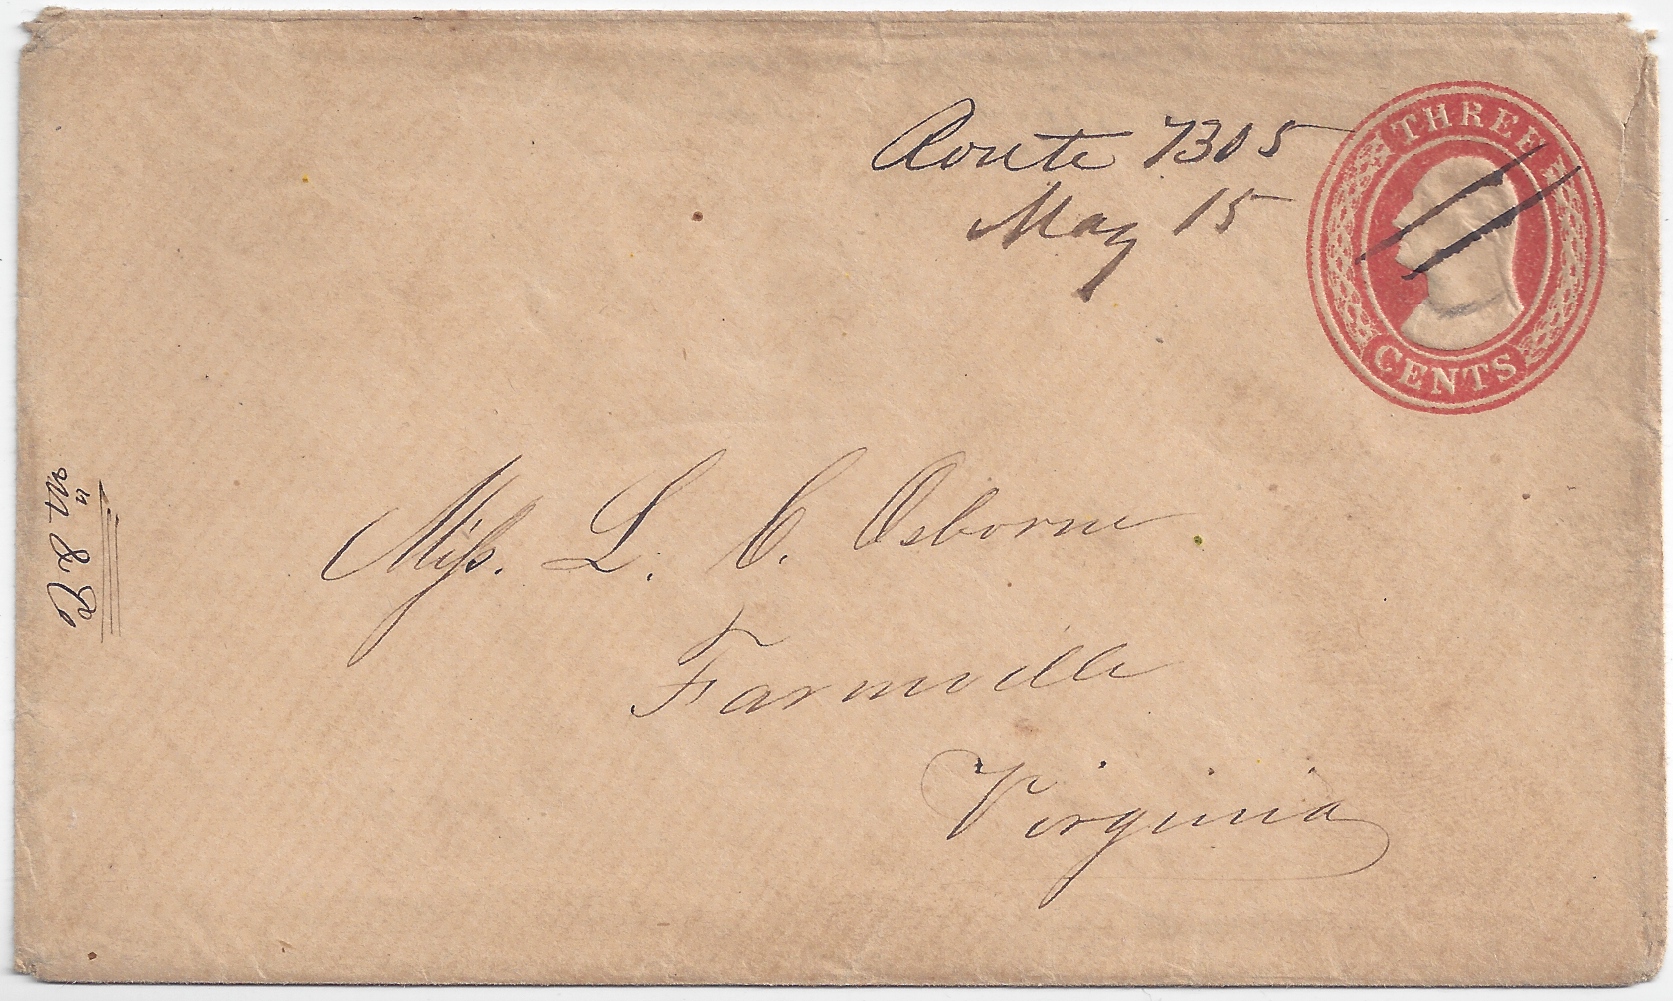 Route 7305
May 15
THREE
CENTS
Miss. L. C. Osborne
Farmville
Virginia